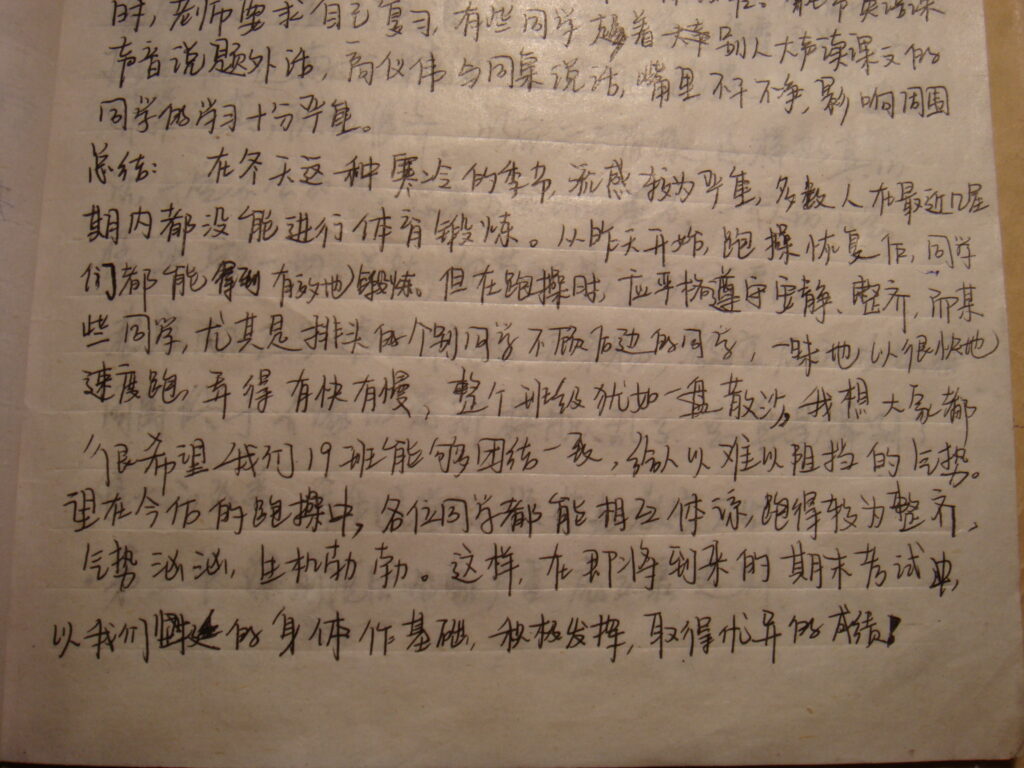 时,老师要求自己复习,有些同学随着 别人大声读课文的
声音说题外话,高仪伟与同桌说话,嘴里不干不净,影响周围
同学的学习十分严重。
总结: 在冬天这一种寒冷的季节,流感较为严重,多数人在最近几星
期内都没能进行体育锻炼。从昨天开始,跑操恢复后,同学
们都能得到有效地锻炼。但在跑操时,应严格遵守安静、整齐,而某
些同学,尤其是排头的个别同学不顾后边的同学,一味地以很快地
速度跑,弄得有快有慢,整个班级犹如一盘散沙,我想大家都
很希望我们19班能够团结一致,给人以难以阻挡的气势。
望在今后的跑操中,各位同学都能相互体谅,跑得较为整齐,
气势汹汹,生机勃勃。这样,在即将到来的期末考试中,
以我们 的身体作基础,积极发挥,取得优异的成绩!